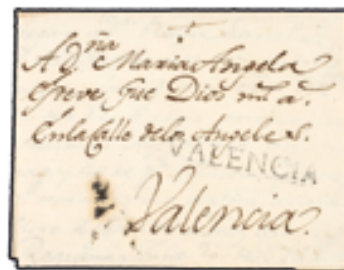 A D.ña Maria Angela
Greve gue Dios m.s a.s
En la Calle de los Angeles.
VALENCIA
Valencia.